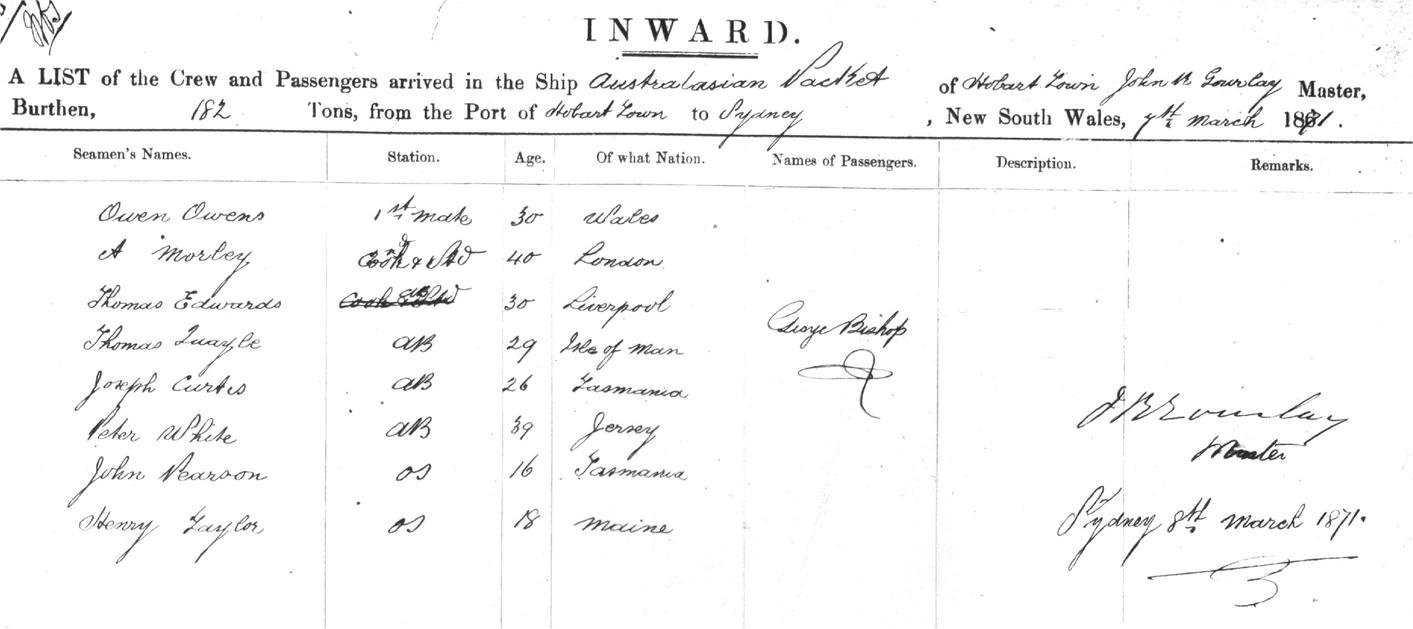 INWARD.
A LIST of the Crew and Passengers arrived in the Ship Australasian Packet of Hobart Town John R Gourlay Master,
Burthen, 182 Tons, from the Port of Hobart Town to Sydney , New South Wales, 7th March 1871.
Seamen's Names. Station. Age. Of what Nation. Names of Passengers. Description. Remarks.
Owen Owens 1st Mate 30 Wales
A Morley Cook & Std 40 London
Thomas Edwards AB 30 Liverpool
George Bishop
Thomas Quayle AB 29 Isle of Man
Joseph Curtis AB 26 Tasmania
Peter White AB 39 Jersey
J R Gourlay
Master
John Pearson OS 16 Tasmania
Henry Taylor OS 18 Maine
Sydney 8th March 1871.